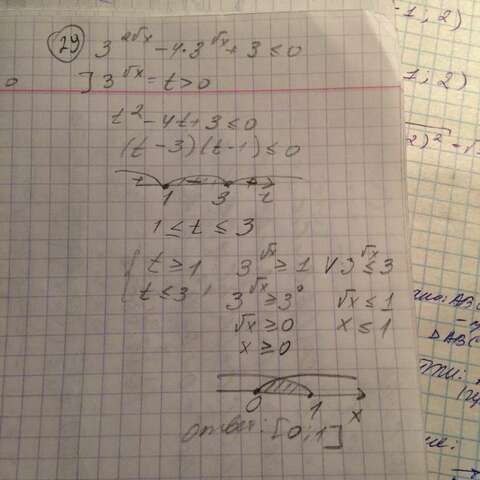 29 3^{2√x} - 4·3^{√x} + 3 ≤ 0
] 3^{√x} = t > 0
t² - 4t + 3 ≤ 0
(t - 3)(t - 1) ≤ 0
+ - +
1 3 t
1 ≤ t ≤ 3
{ t ≥ 1 3^{√x} ≥ 1 V 3^{√x} ≤ 3
t ≤ 3 , 3^{√x} ≥ 3° √x ≤ 1
√x ≥ 0 x ≤ 1
x ≥ 0
0 1 x
ответ: [0; 1]
-1; 2)
; 2)
2)²
ABC
DABC